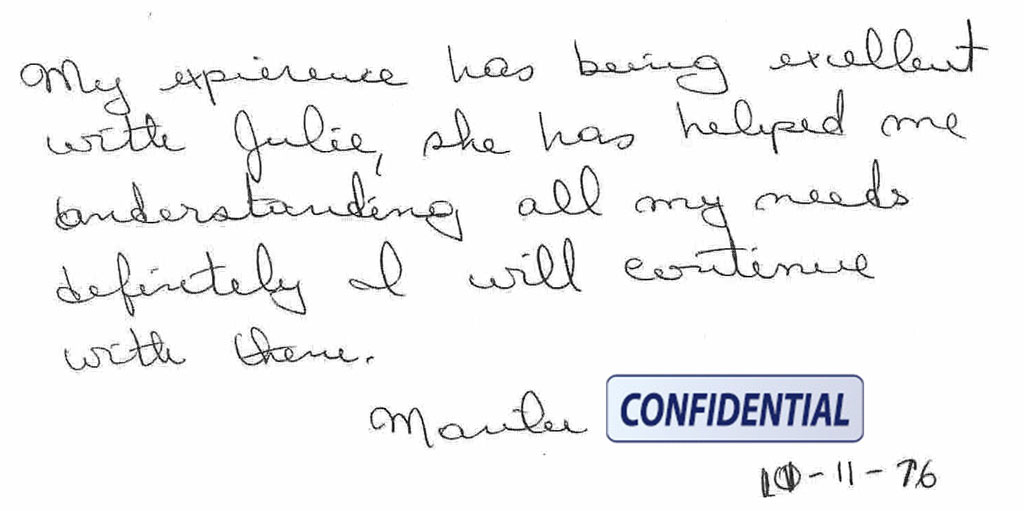 My expierence has being excellent
with Julie, she has helped me
understanding all my needs
definetely I will continue
with them.
CONFIDENTIAL
-11-76